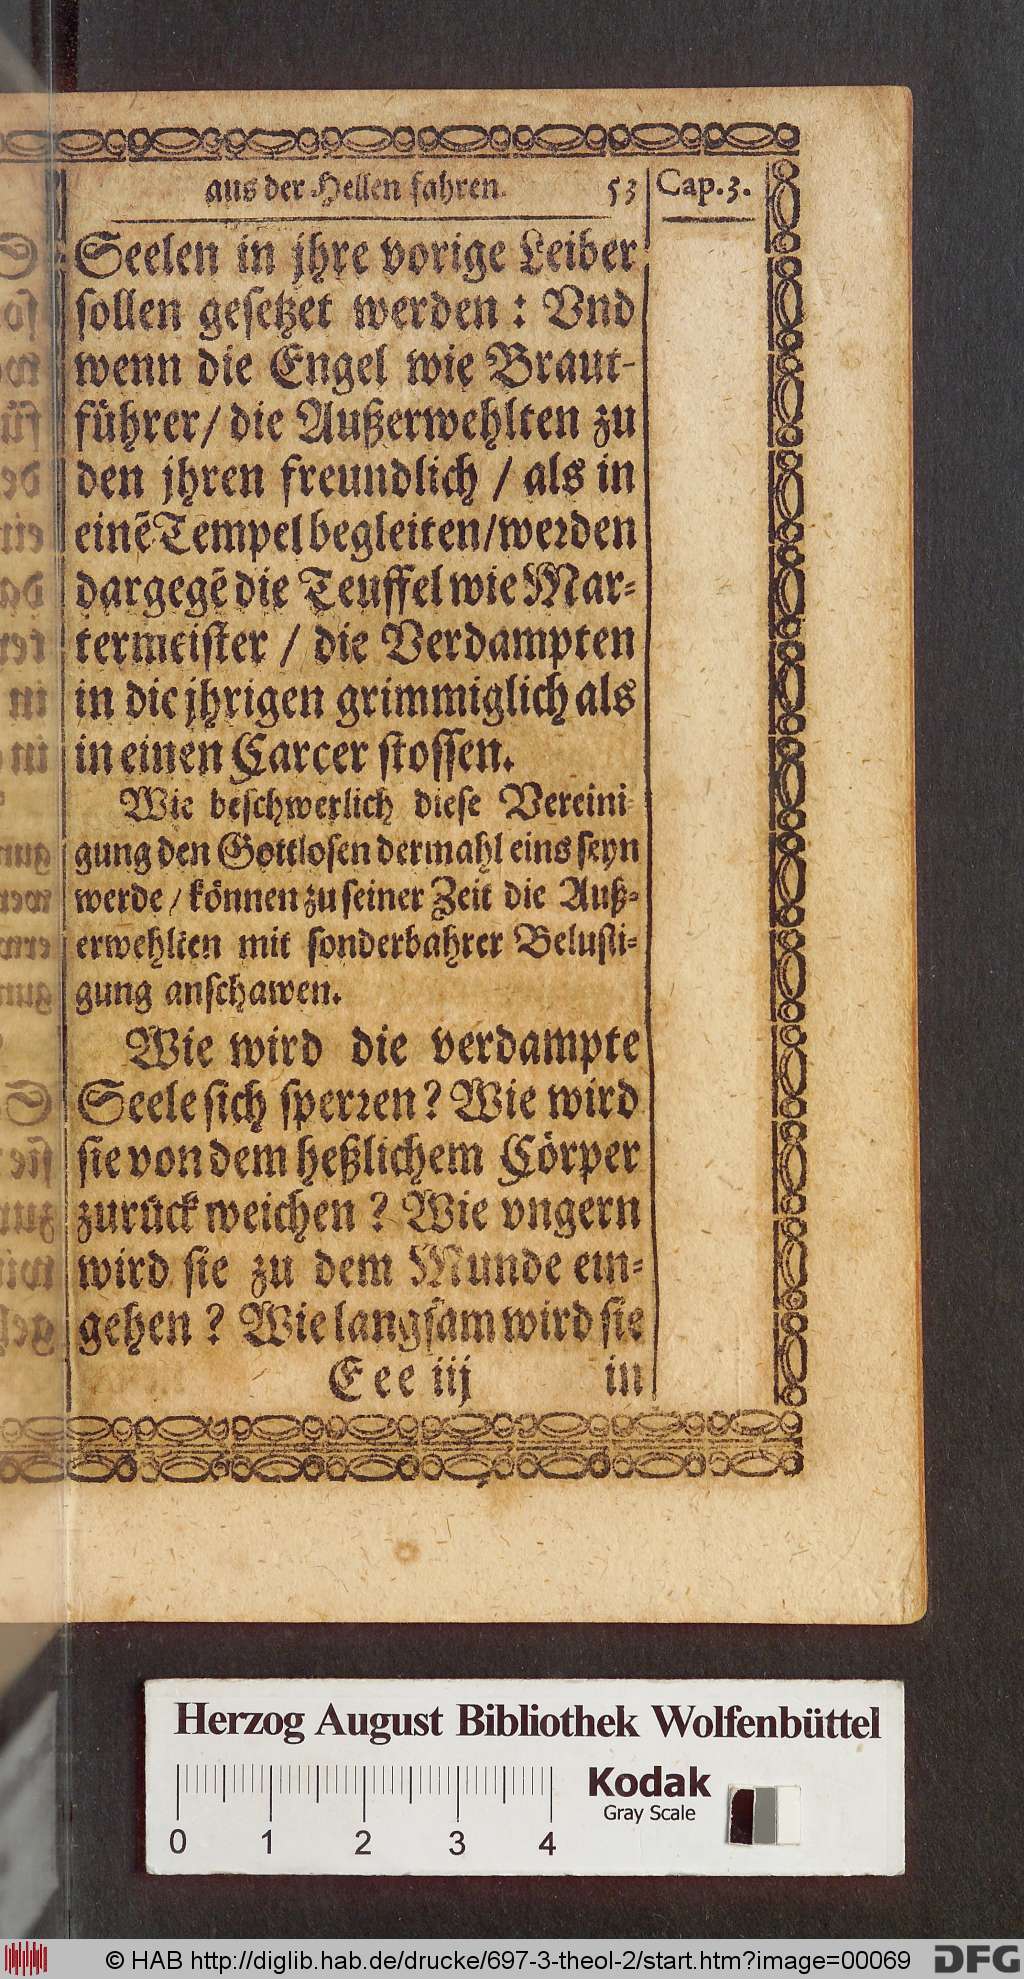 aus der Hellen fahren. 53 Cap. 3.
Seelen in jhre vorige Leiber
sollen gesetzet werden : Vnd
wenn die Engel wie Braut-
führer/ die Außerwehlten zu
den jhren freundlich / als in
einẽ Tempel begleiten/werden
dargegẽ die Teuffel wie Mar-
termeister / die Verdampten
in die jhrigen grimmiglich als
in einen Carcer stossen.
Wie beschwerlich diese Vereini-
gung den Gottlosen dermahl eins seyn
werde / können zu seiner Zeit die Auß-
erwehlten mit sonderbahrer Belusti-
gung anschawen.
Wie wird die verdampte
Seele sich sperren? Wie wird
sie von dem heßlichem Cörper
zurück weichen ? Wie vngern
wird sie zu dem Munde ein-
gehen ? Wie langsam wird sie
E e e iij in
Herzog August Bibliothek Wolfenbüttel
Kodak
Gray Scale
0 1 2 3 4
© HAB http://diglib.hab.de/drucke/697-3-theol-2/start.htm?image=00069
DFG